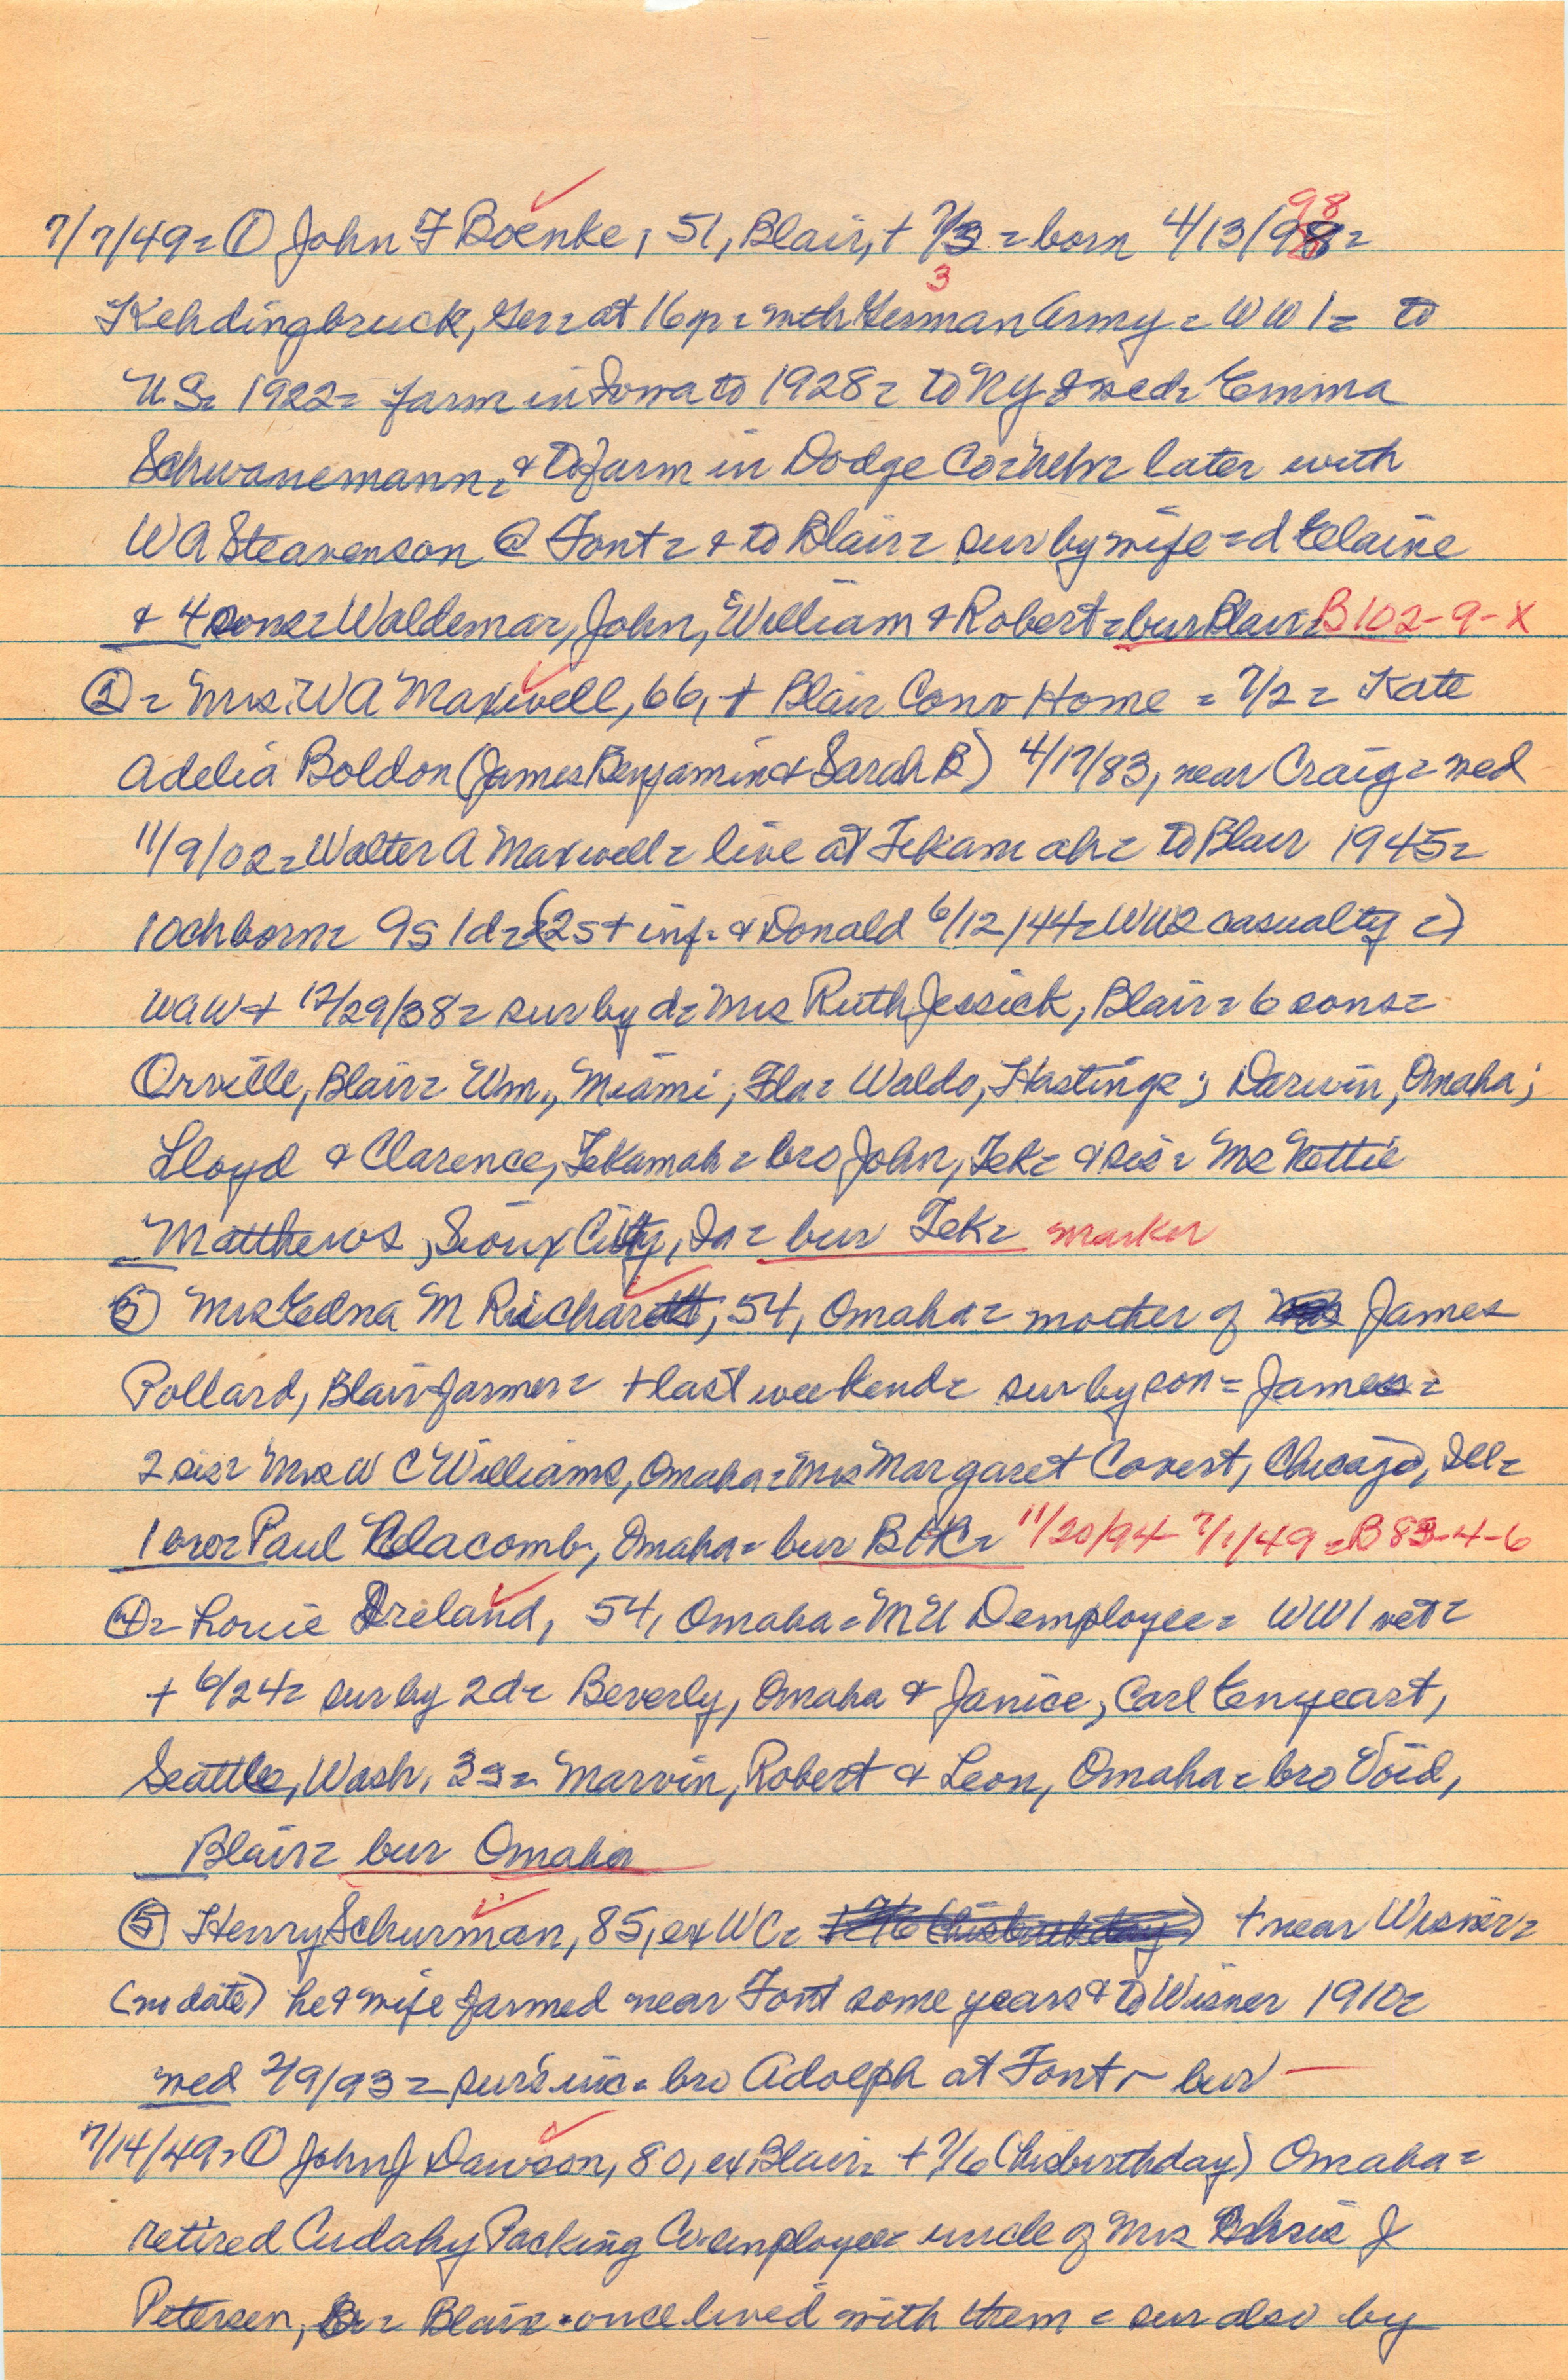 7/7/49= ① John F Boenke, 51, Blair, + 7/3 = born 4/13/98 98 =
3
Kehdingbruck, Ger= at 16 yr= with German Army= WW1= to
U.S= 1922= farm in Iowa to 1928= to NY & wed= Emma
Schwanemann= & to farm in Dodge Co= Nebr= later with
WA Steavenson @ Font= & to Blair= sur by wife= d Elaine
& 4 sons= Waldemar, John, William & Robert= bur Blair= B102-9-X
②= Mrs. WA Maxwell, 66, + Blair Conv Home = 7/2= Kate
Adelia Boldon (James Benjamin & Sarah B) 4/17/83, near Craig= wed
11/9/02= Walter A Maxwell= live at Tekamah= to Blair 1945=
10 ch born= 9s 1d= (2s + inf= & Donald 6/12/44= WW2 casualty=)
WAW + 12/29/38= sur by d= Mrs Ruth Jessick, Blair= 6 sons=
Orville, Blair= Wm., Miami, Fla= Waldo, Hastings; Darwin, Omaha;
Lloyd & Clarence, Tekamah= bro John, Tek= & sis= Mrs Nettie
Matthews, Sioux City, Ia= bur Tek= marker
③ Mrs Edna M Richardt, 54, Omaha= mother of James
Pollard, Blair farmer= + last weekend= sur by son= James=
2 sis= Mrs W C Williams, Omaha= Mrs Margaret Covert, Chicago, Ill=
1 bro= Paul Clacomb, Omaha= bur BlR= 11/20/94 7/1/49= B 83-4-6
④= Louie Ireland, 54, Omaha= MUD employee= WW1 vet=
+ 6/24= sur by 2d= Beverly, Omaha & Janice, Carl Enyeart,
Seattle, Wash, 3s= Marvin, Robert & Leon, Omaha= bro Void,
Blair= bur Omaha
⑤ Henry Schurman, 85, ex WC= + 7/6 (his birthday) + near Wisner=
(no date) he & wife farmed near Font some years & to Wisner 1910=
wed 2/9/93= surs inc= bro Adolph at Font~ bur —
7/14/49= ① John J Dawson, 80, ex Blair= + 7/6 (his birthday) Omaha=
retired Cudahy Packing Co employee= uncle of Mrs Chris J
Petersen, Sr= Blair= once lived with them= sur also by